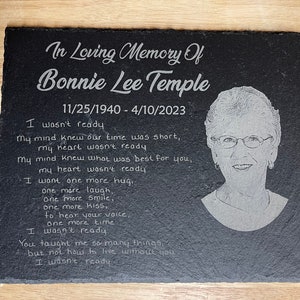 In Loving Memory Of
Bonnie Lee Temple
11/25/1940 - 4/10/2023
I wasn't ready
My mind knew our time was short,
my heart wasn't ready
My mind knew what was best for you,
my heart wasn't ready
I want one more hug,
one more laugh,
one more smile,
one more kiss,
to hear your voice
one more time
I wasn't ready
You taught me so many things,
but not how to live without you
I wasn't ready